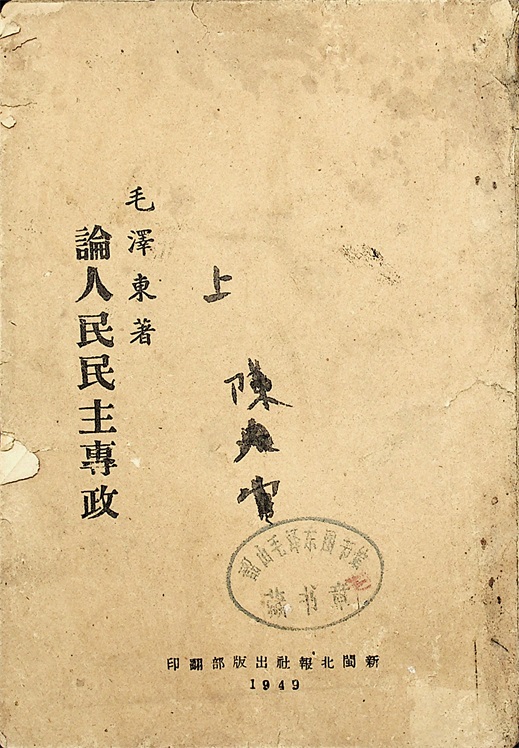 上
陳
毛澤東著
論人民民主專政
新閩北報社出版部翻印
1949